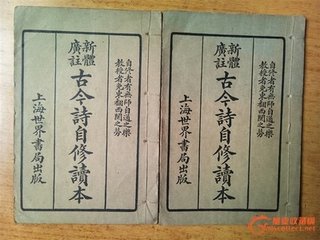 自修者有無師自通之樂
教授者免東翻西閱之勞
新體
廣註
古今詩自修讀本
上海世界書局出版
自修者有無師自通之樂
教授者免東翻西閱之勞
新體
廣註
古今詩自修讀本
上海世界書局出版
mycollect.net